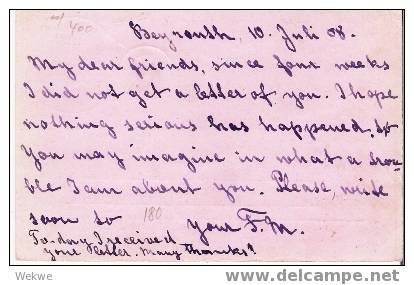 400
Beyrouth, 10. Juli 08.
My dear friends, since four weeks
I did not get a letter of you. I hope
nothing serious has happened, to
You may imagine in what a trou-
ble I am about you. Please, write
soon to your F.M.
180
To-day I received
your letter. Many thanks!
Wekwe
delcampe.net